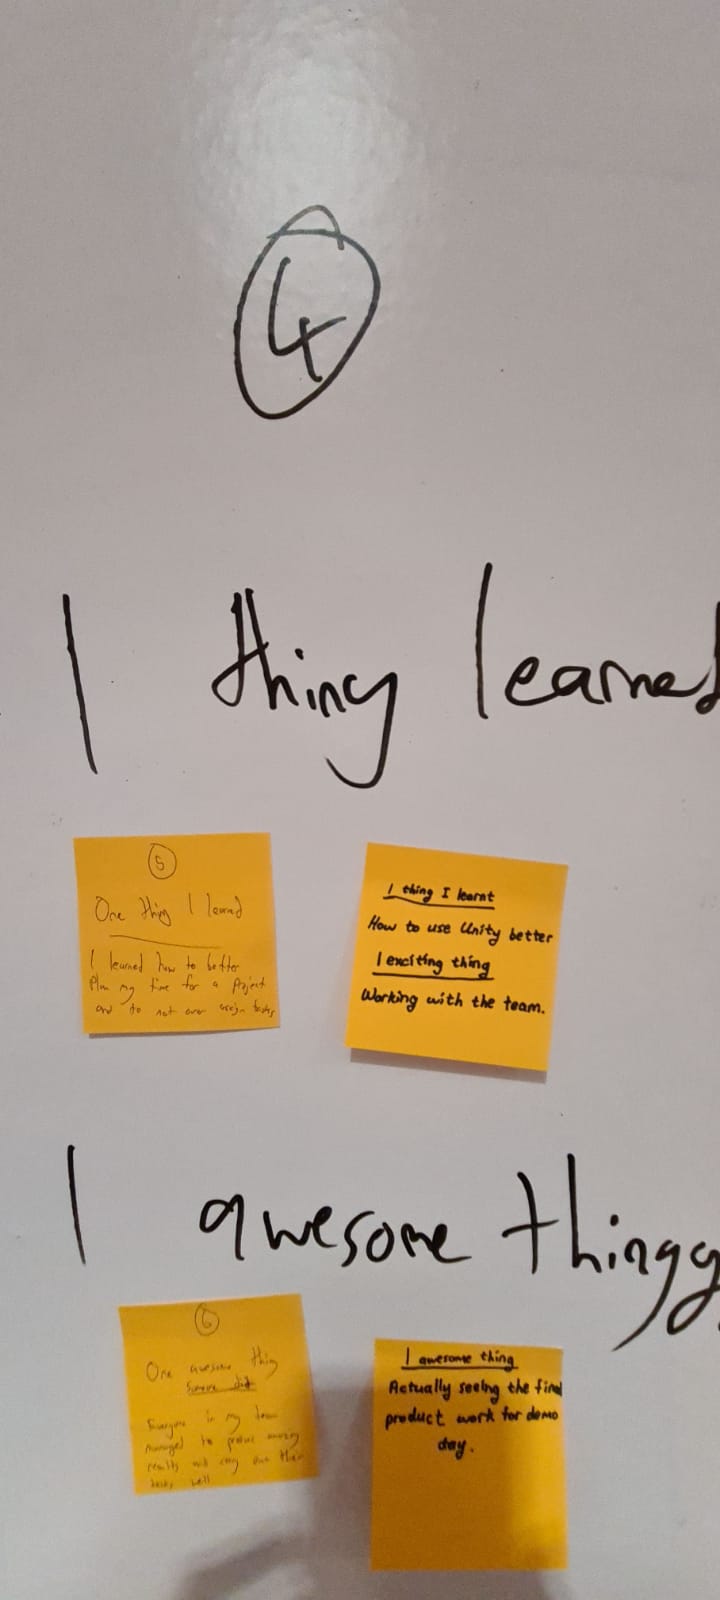 4
1 thing learned
5
One thing I learned
I learned how to better
Plan my time for a Project
and to not over assign tasks
1 thing I learnt
How to use Unity better
1 exciting thing
Working with the team.
1 awesome thingg
6
One awesome thing
Someone did
Everyone in my team
managed to produce amazing
results and carry out their
tasks well
1 awesome thing
Actually seeing the final
product work for demo
day.